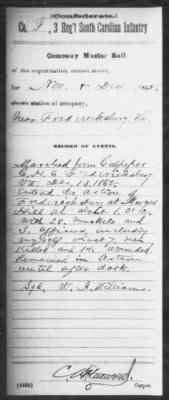 (Confederate.)
Co. F, 3 Reg't South Carolina Infantry
Company Muster Roll
of the organization named above,
for Nov. & Dec, 1862.
shows station of company,
Near Fredericksburg Va.
RECORD OF EVENTS.
Marched from Culpeper
C. H. to Fredericksburg
Va. Dec. 13, 1862,
entered the action of
Fredericksburg at
Hill at about 1, o'c,
with 28, muskets and
3, officers, including
myself. Lost 7, men
Killed and 14, wounded.
Remained in action
until after dark.
Sgd, W. A. Williams.
Copyist.